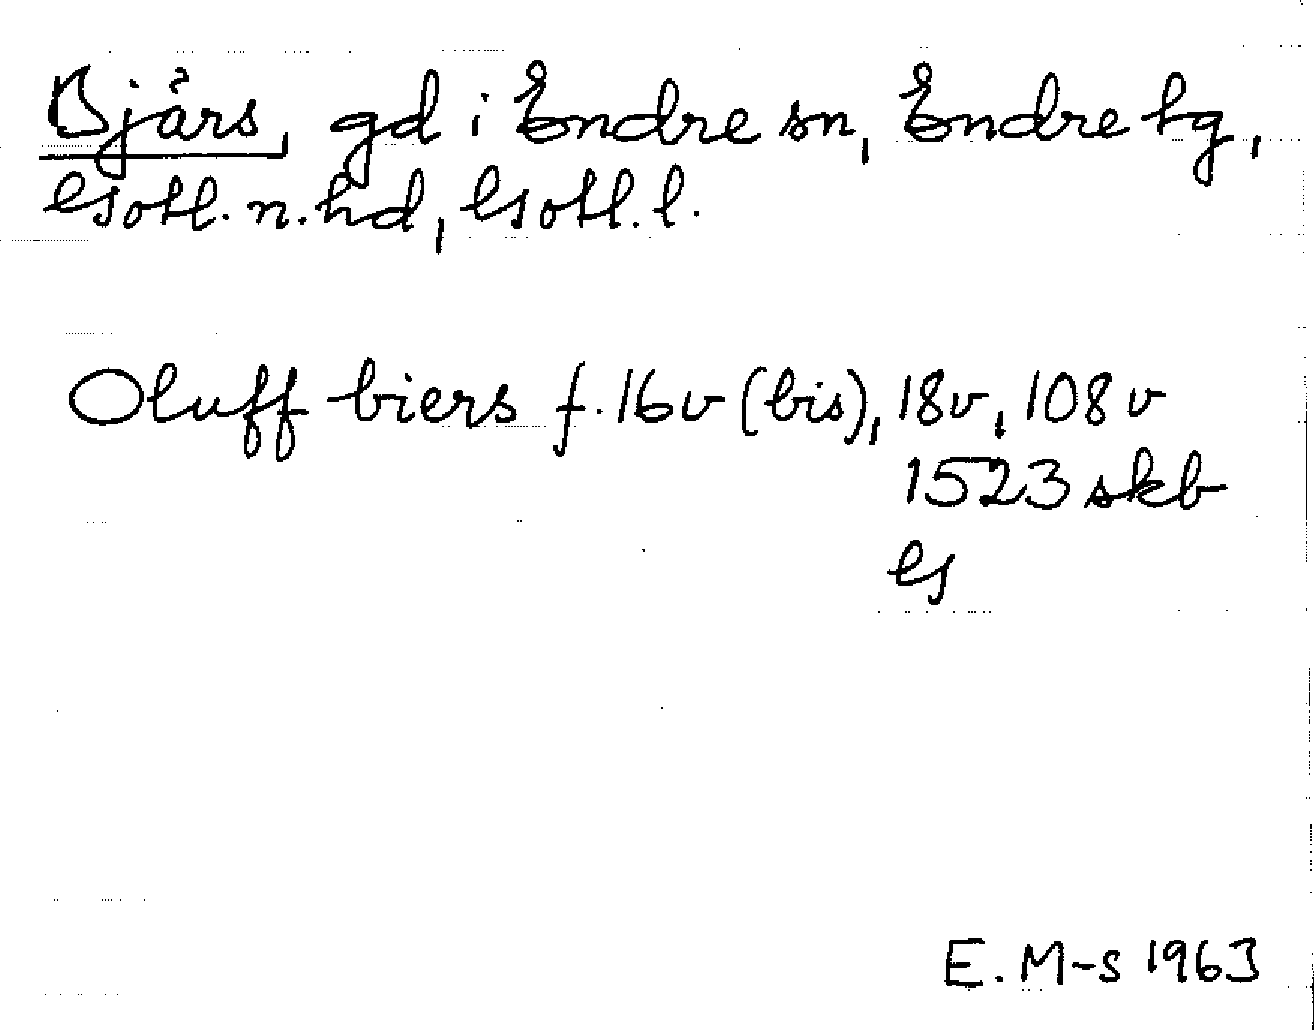 Bjärs, gd i Endre sn, Endre tg,
Gotl. n. hd, Gotl. l.
Oluff biers f. 16v (bis), 18v, 108v
1523 skb
G
E. M-s 1963